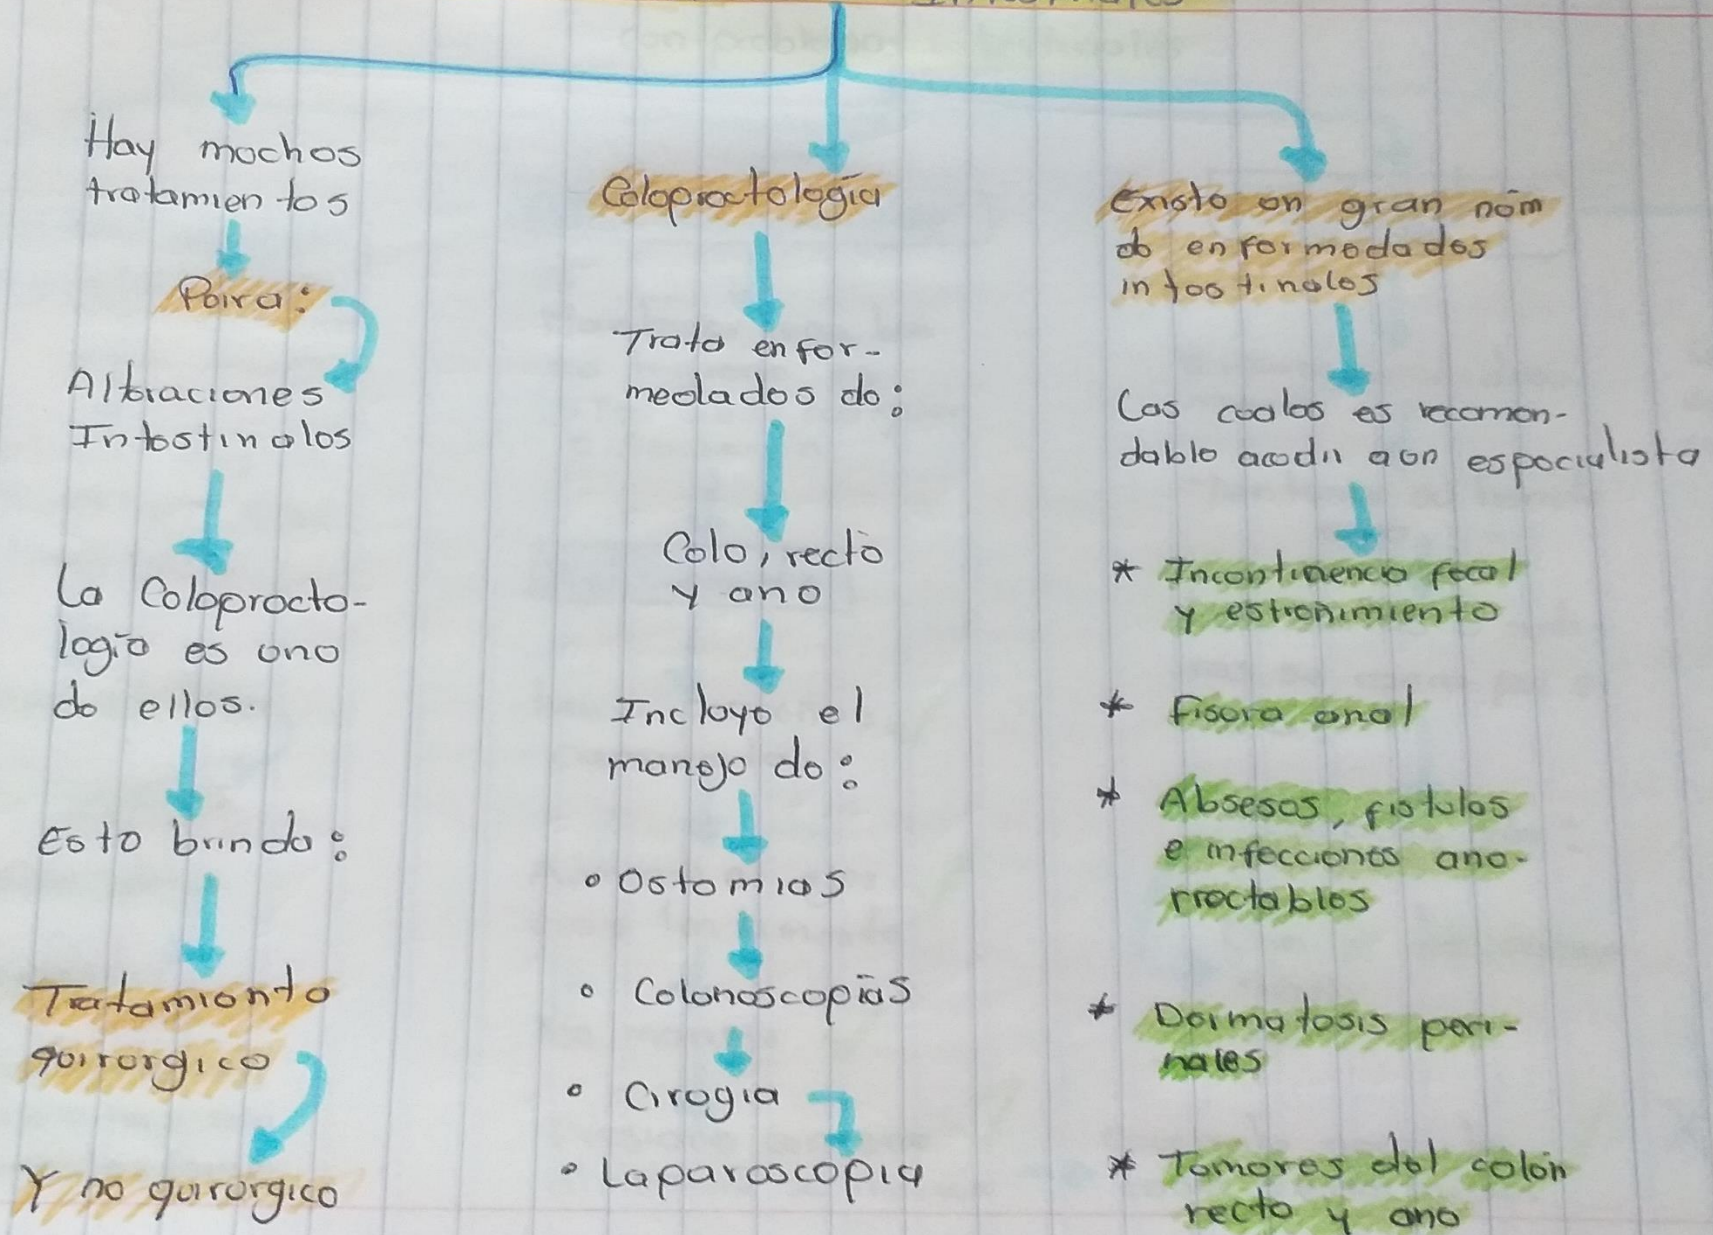 Hay muchos
tratamientos
Para:
Alteraciones
Intestinales
La Coloprocto-
logía es uno
de ellos.
Esto brinda:
Tratamiento
quirurgico
Y no quirurgico
Coloproctología
Trata enfer-
medades de:
Colo, recto
y ano
Incluye el
manejo de:
• Ostomias
• Colonoscopías
• Cirugia
• Laparoscopia
Existe un gran núm
de enfermedades
intestinales
Las cuales es recomen-
dable acudir a un especialista
* Incontinencia fecal
y estreñimiento
* Fisura anal
* Absesos, fistulas
e infecciones ano-
rrectables
* Dermatosis peri-
nales
* Tumores del colón
recto y ano